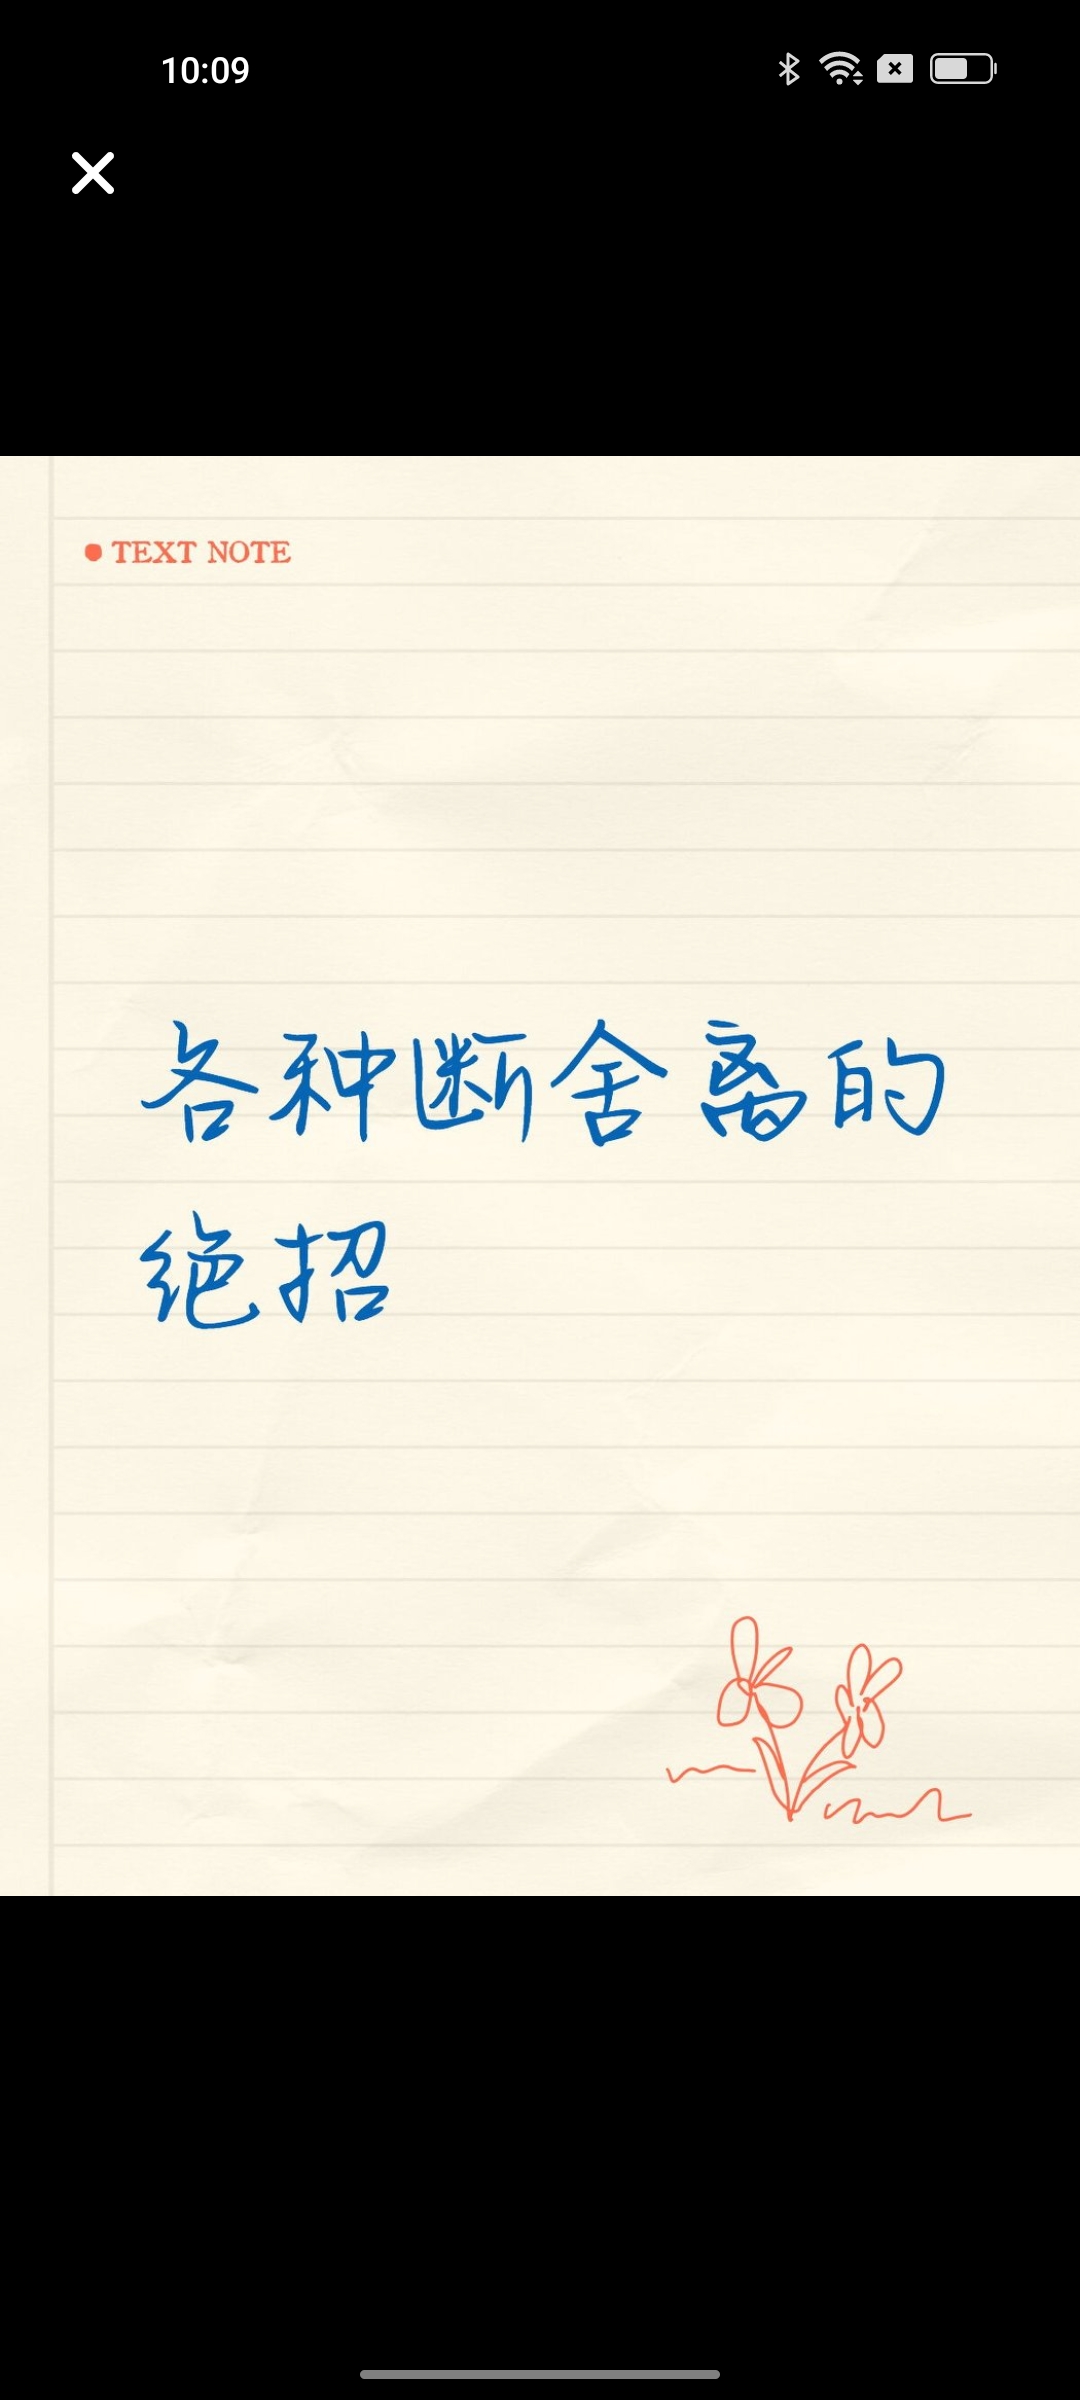 10:09
TEXT NOTE
各种断舍离的
绝招